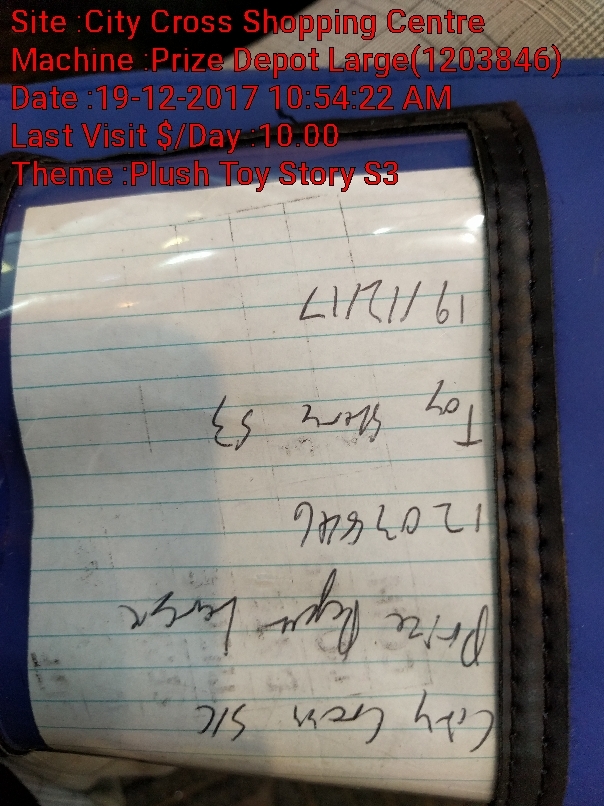 Site :City Cross Shopping Centre
Machine :Prize Depot Large(1203846)
Date :19-12-2017 10:54:22 AM
Last Visit $/Day :10.00
Theme :Plush Toy Story S3
City Cross S/C
Prize Depot Large
1203846
Toy Story S3
19/12/17